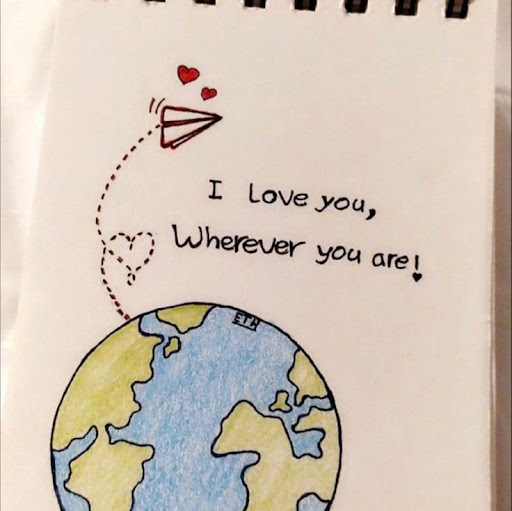 I love you,
Wherever you are!
ETH